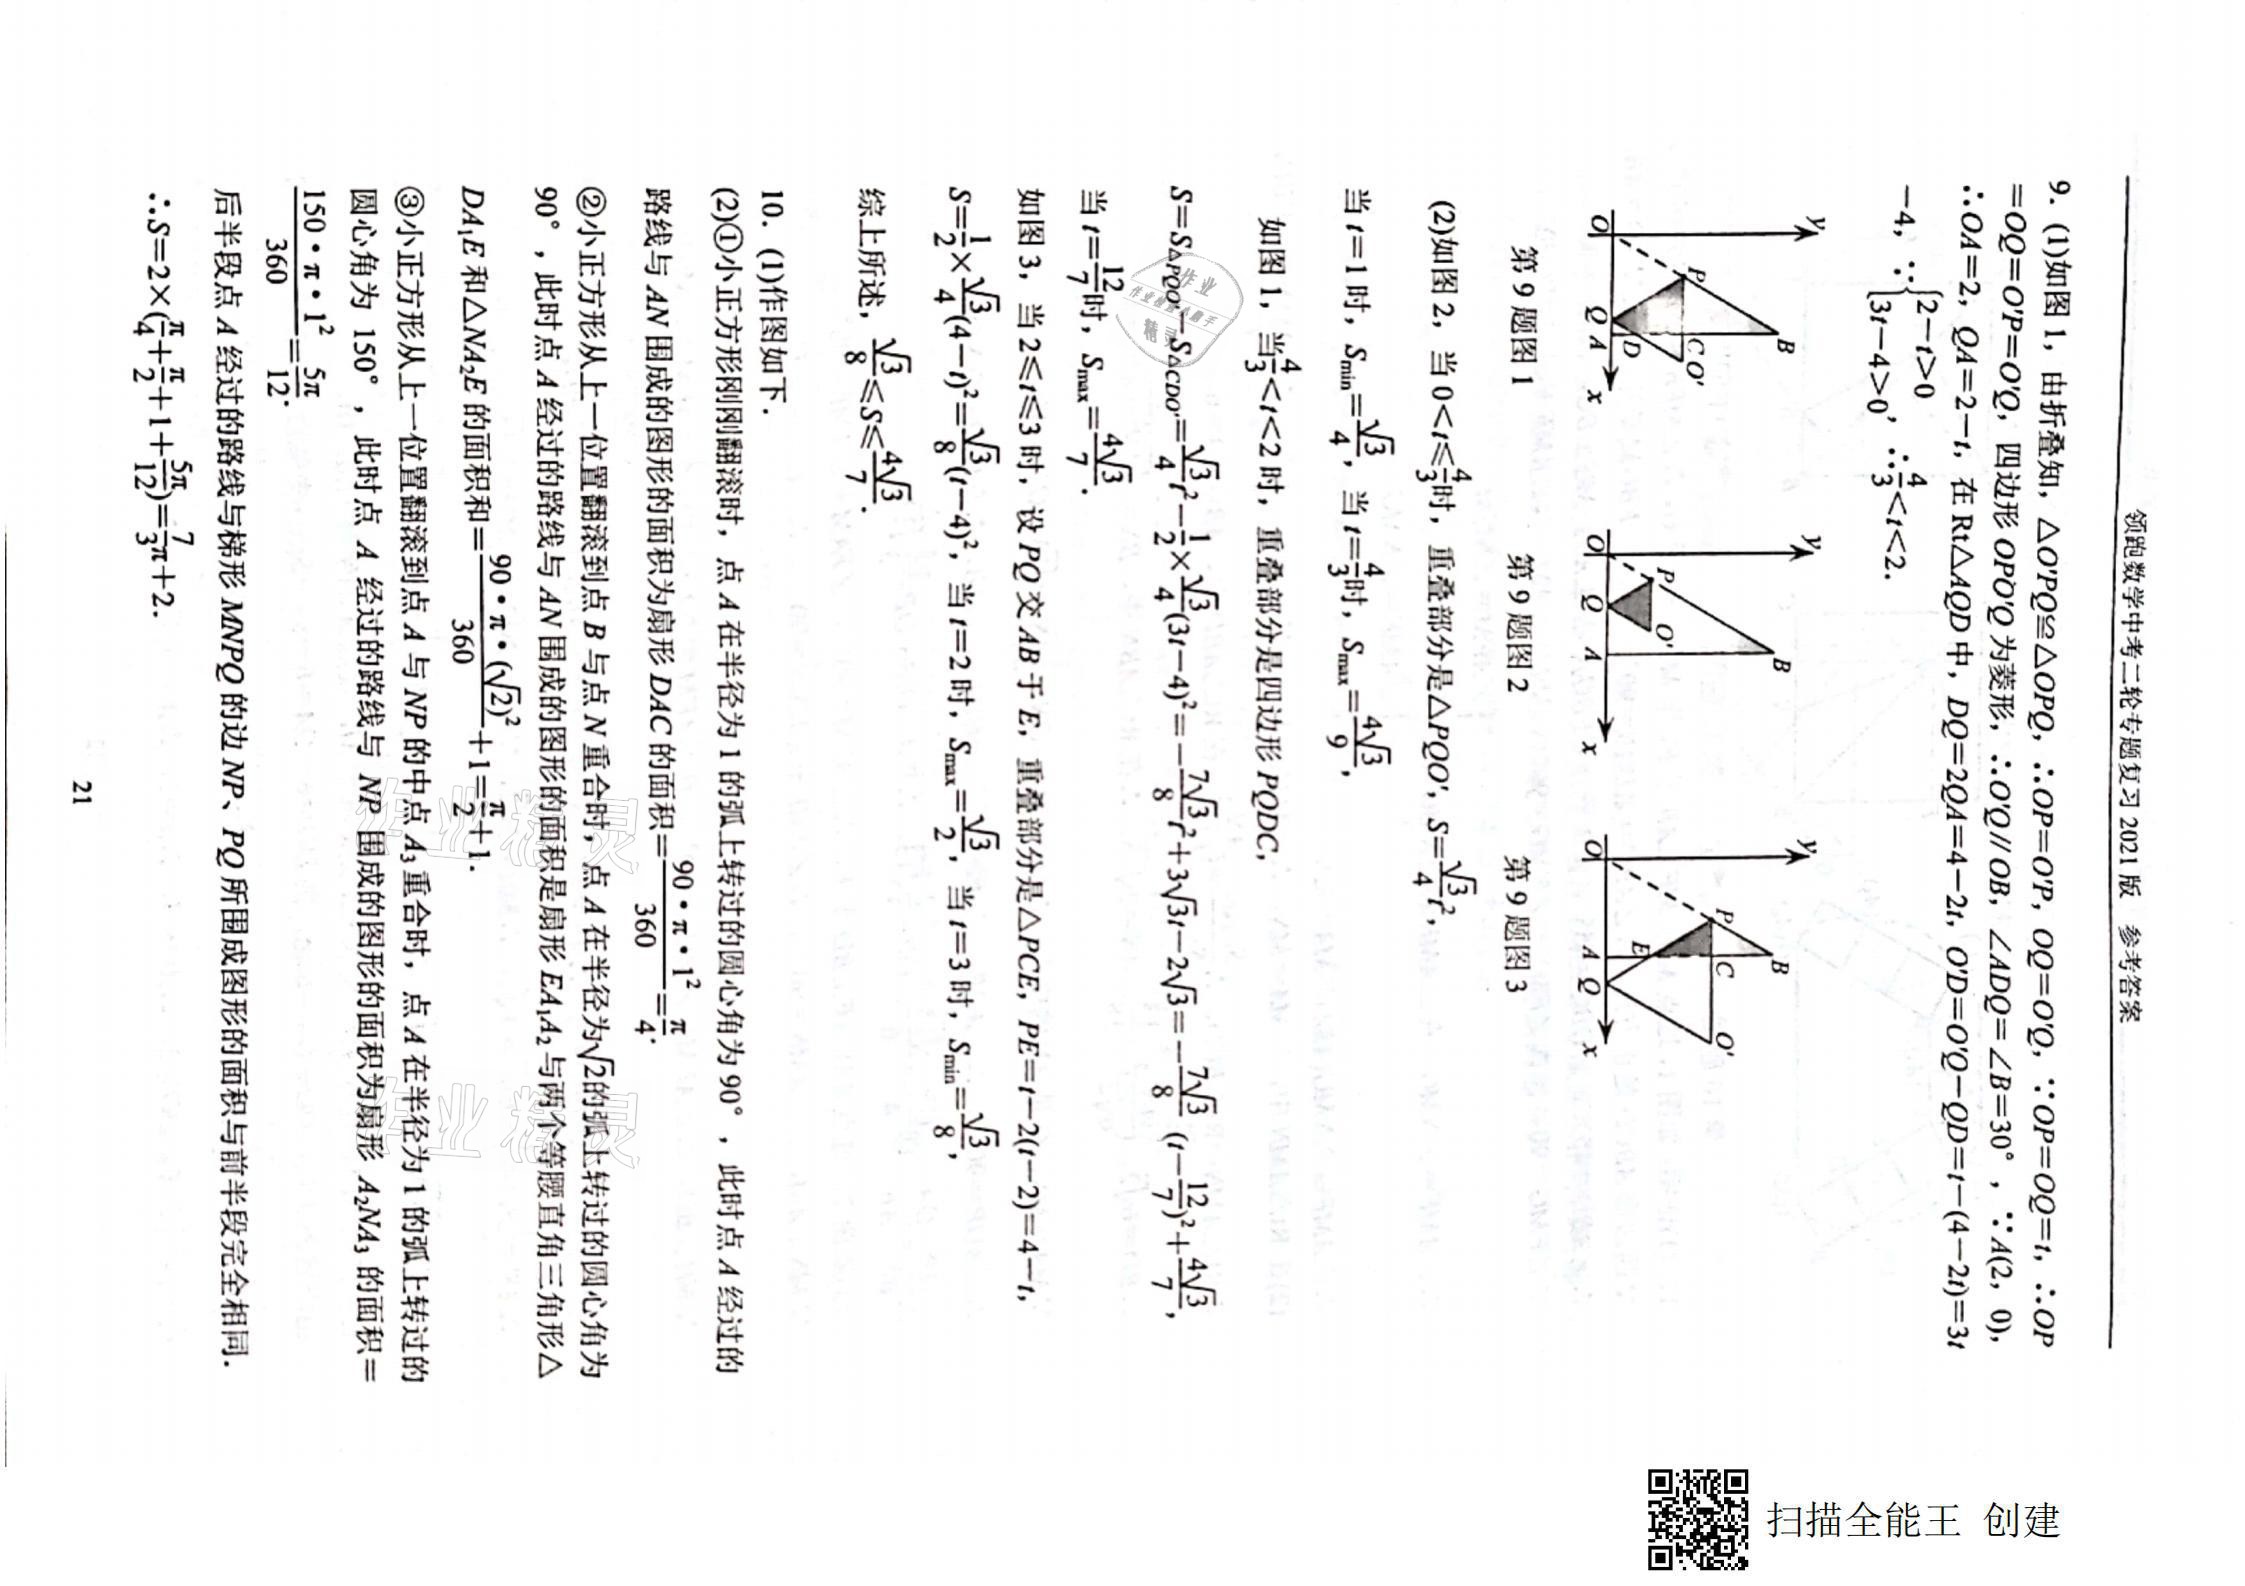 领跑数学中考二轮专题复习 2021 版 参考答案
9. (1)如图 1，由折叠知，△O′PQ≌△OPQ，∴OP=O′P，OQ=O′Q，∵OP=OQ=t，∴OP
=OQ=O′P=O′Q，四边形 OPO′Q 为菱形，∴O′Q//OB，∠ADQ=∠B=30°，∵A(2，0)，
∴OA=2，QA=2-t，在 Rt△AQD 中，DQ=2QA=4-2t，O′D=O′Q-QD=t-(4-2t)=3t
-4，∵{2-t>0 3t-4>0，∴4/3<t<2.
y P B C O′ D O Q A x
y P B O′ O Q A x
y P B C O′ E O A Q x
第 9 题图 1 第 9 题图 2 第 9 题图 3
(2)如图 2，当 0<t≤4/3时，重叠部分是△PQO′，S=√3/4t²，
当 t=1 时，Smin=√3/4，当 t=4/3时，Smax=4√3/9，
如图 1，当4/3<t<2 时，重叠部分是四边形 PQDC，
S=S△PQO′-S△CDO′=√3/4t²-1/2×√3/4(3t-4)²=-7√3/8t²+3√3t-2√3=-7√3/8(t-12/7)²+4√3/7，
当 t=12/7时，Smax=4√3/7.
如图 3，当 2≤t≤3 时，设 PQ 交 AB 于 E，重叠部分是△PCE，PE=t-2(t-2)=4-t，
S=1/2×√3/4(4-t)²=√3/8(t-4)²，当 t=2 时，Smax=√3/2，当 t=3 时，Smin=√3/8，
综上所述，√3/8≤S≤4√3/7.
10. (1)作图如下.
(2)①小正方形刚刚翻滚时，点 A 在半径为 1 的弧上转过的圆心角为 90°，此时点 A 经过的
路线与 AN 围成的图形的面积为扇形 DAC 的面积=90·π·1²/360=π/4.
②小正方形从上一位置翻滚到点 B 与点 N 重合时，点 A 在半径为√2的弧上转过的圆心角为
90°，此时点 A 经过的路线与 AN 围成的图形的面积是扇形 EA₁A₂与两个等腰直角三角形△
DA₁E 和△NA₂E 的面积和=90·π·(√2)²/360+1=π/2+1.
③小正方形从上一位置翻滚到点 A 与 NP 的中点 A₃重合时，点 A 在半径为 1 的弧上转过的
圆心角为 150°，此时点 A 经过的路线与 NP 围成的图形的面积为扇形 A₂NA₃ 的面积=
150·π·1²/360=5π/12.
后半段点 A 经过的路线与梯形 MNPQ 的边 NP、PQ 所围成图形的面积与前半段完全相同.
∴S=2×(π/4+π/2+1+5π/12)=7/3π+2.
21
作业精灵
作业精灵
作业
作业检查小助手
精灵
扫描全能王 创建